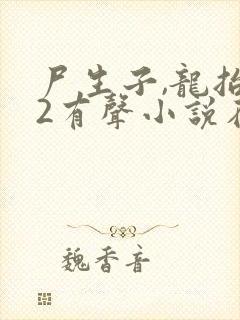 尸生子,龍抬
2有聲小說在
魏香音